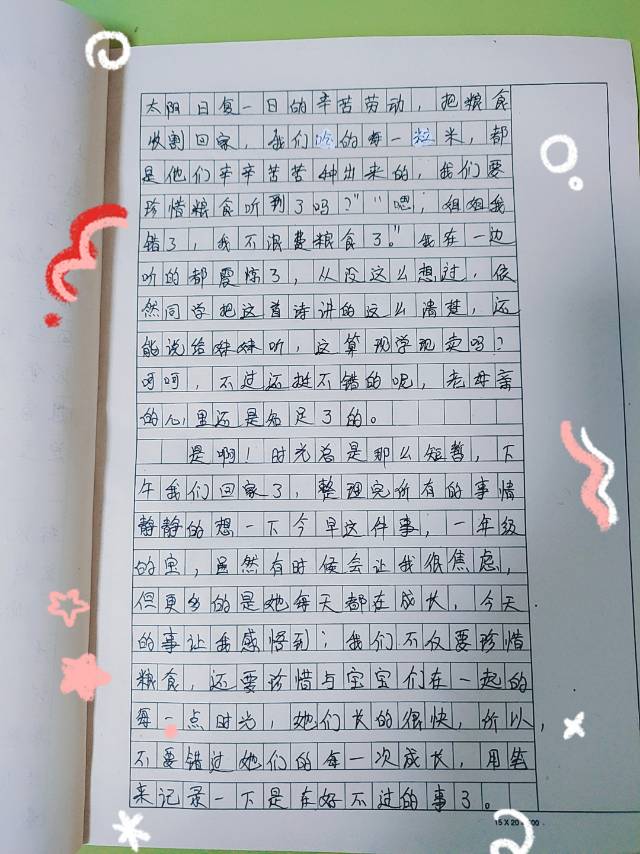 太阳日复一日的辛苦劳动，把粮食
收割回家，我们吃的每一粒米，都
是他们辛辛苦苦种出来的，我们要
珍惜粮食听到了吗？"“嗯；姐姐我
错了，我不浪费粮食了。"我在一边
听的都震惊了，从没这么想过，依
然同学把这首诗讲的这么清楚，还
能说给妹妹听，这算现学现卖吗？
呵呵，不过还挺不错的呢，老母亲
的心里还是知足了的。
是啊！时光总是那么短暂，下
午我们回家了，整理完所有的事情
静静的想一下今早这件事，一年级
的宝，虽然有时候会让我很焦虑，
但更多的是她每天都在成长，今天
的事让我感悟到；我们不仅要珍惜
粮食，还要珍惜与宝宝们在一起的
每一点时光，她们长的很快，所以，
不要错过她们的每一次成长，用笔
来记录一下是在好不过的事了。